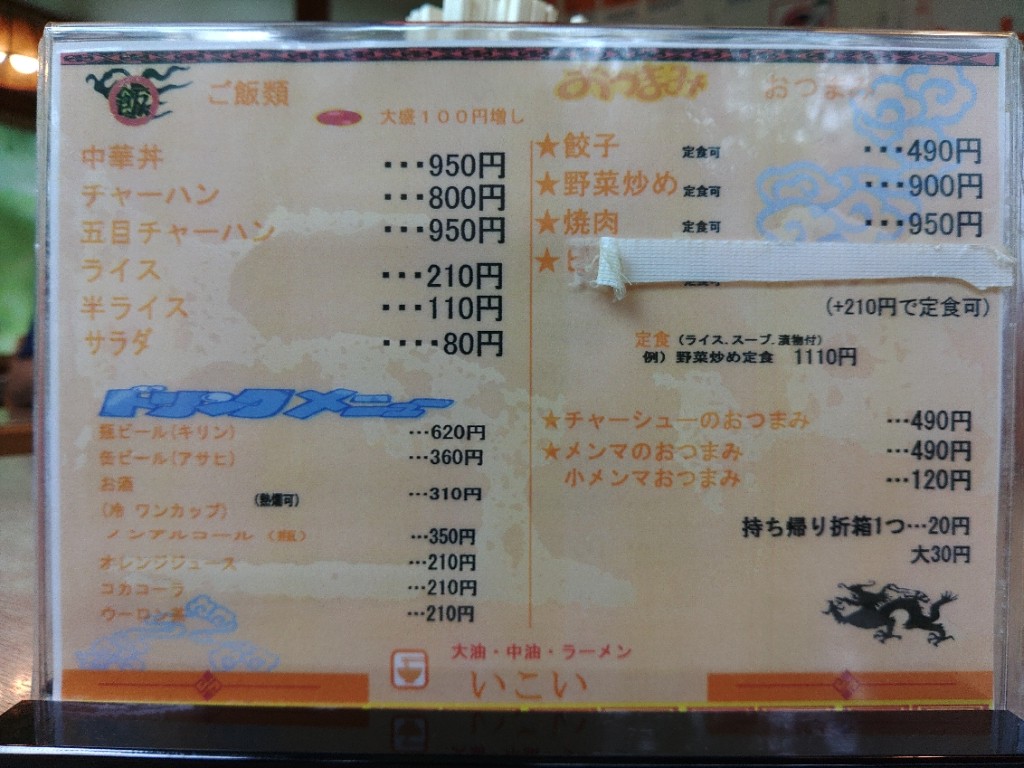 飯 ご飯類
大盛100円増し
中華丼 ･･･950円
チャーハン ･･･800円
五目チャーハン ･･･950円
ライス ･･･210円
半ライス ･･･110円
サラダ ････80円
ドリンクメニュー
瓶ビール(キリン) ･･･620円
缶ビール(アサヒ) ･･･360円
お酒 (熱燗可) ･･･310円
(冷 ワンカップ)
ノンアルコール (瓶) ･･･350円
オレンジジュース ･･･210円
コカコーラ ･･･210円
ウーロン茶 ･･･210円
おつまみ おつまみ
★餃子 定食可 ･･･490円
★野菜炒め 定食可 ･･･900円
★焼肉 定食可 ･･･950円
★
(+210円で定食可)
定食 (ライス､スープ､漬物付)
例) 野菜炒め定食 1110円
★チャーシューのおつまみ ･･･490円
★メンマのおつまみ ･･･490円
小メンマおつまみ ･･･120円
持ち帰り折箱1つ･･･20円
大30円
大油・中油・ラーメン
いこい